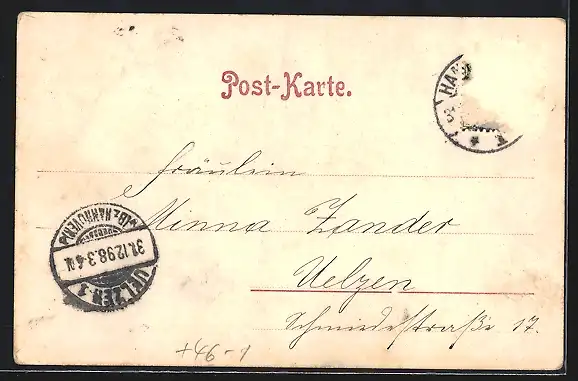 Post-Karte.
HA
Fräulein
Minna Zander
Uelzen
Schmiedestraße 17.
UELZEN 1
31.12.98.3-4N
(BZ. HANNOVER)
+46-1